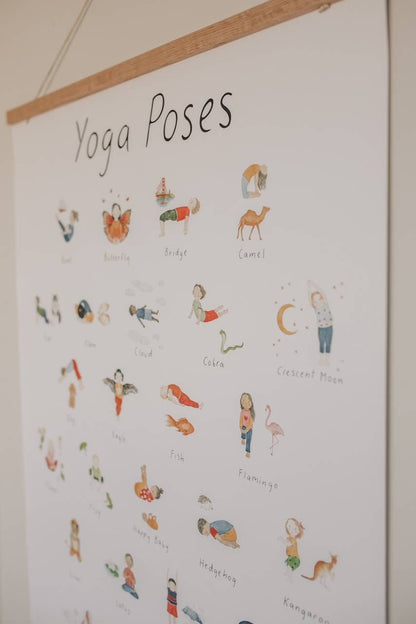 Yoga Poses
Boat Butterfly Bridge Camel
Cat Clam Cloud Cobra Crescent Moon
Dog Eagle Fish Flamingo
Frog Happy Baby Hedgehog Kangaroo
Lotus